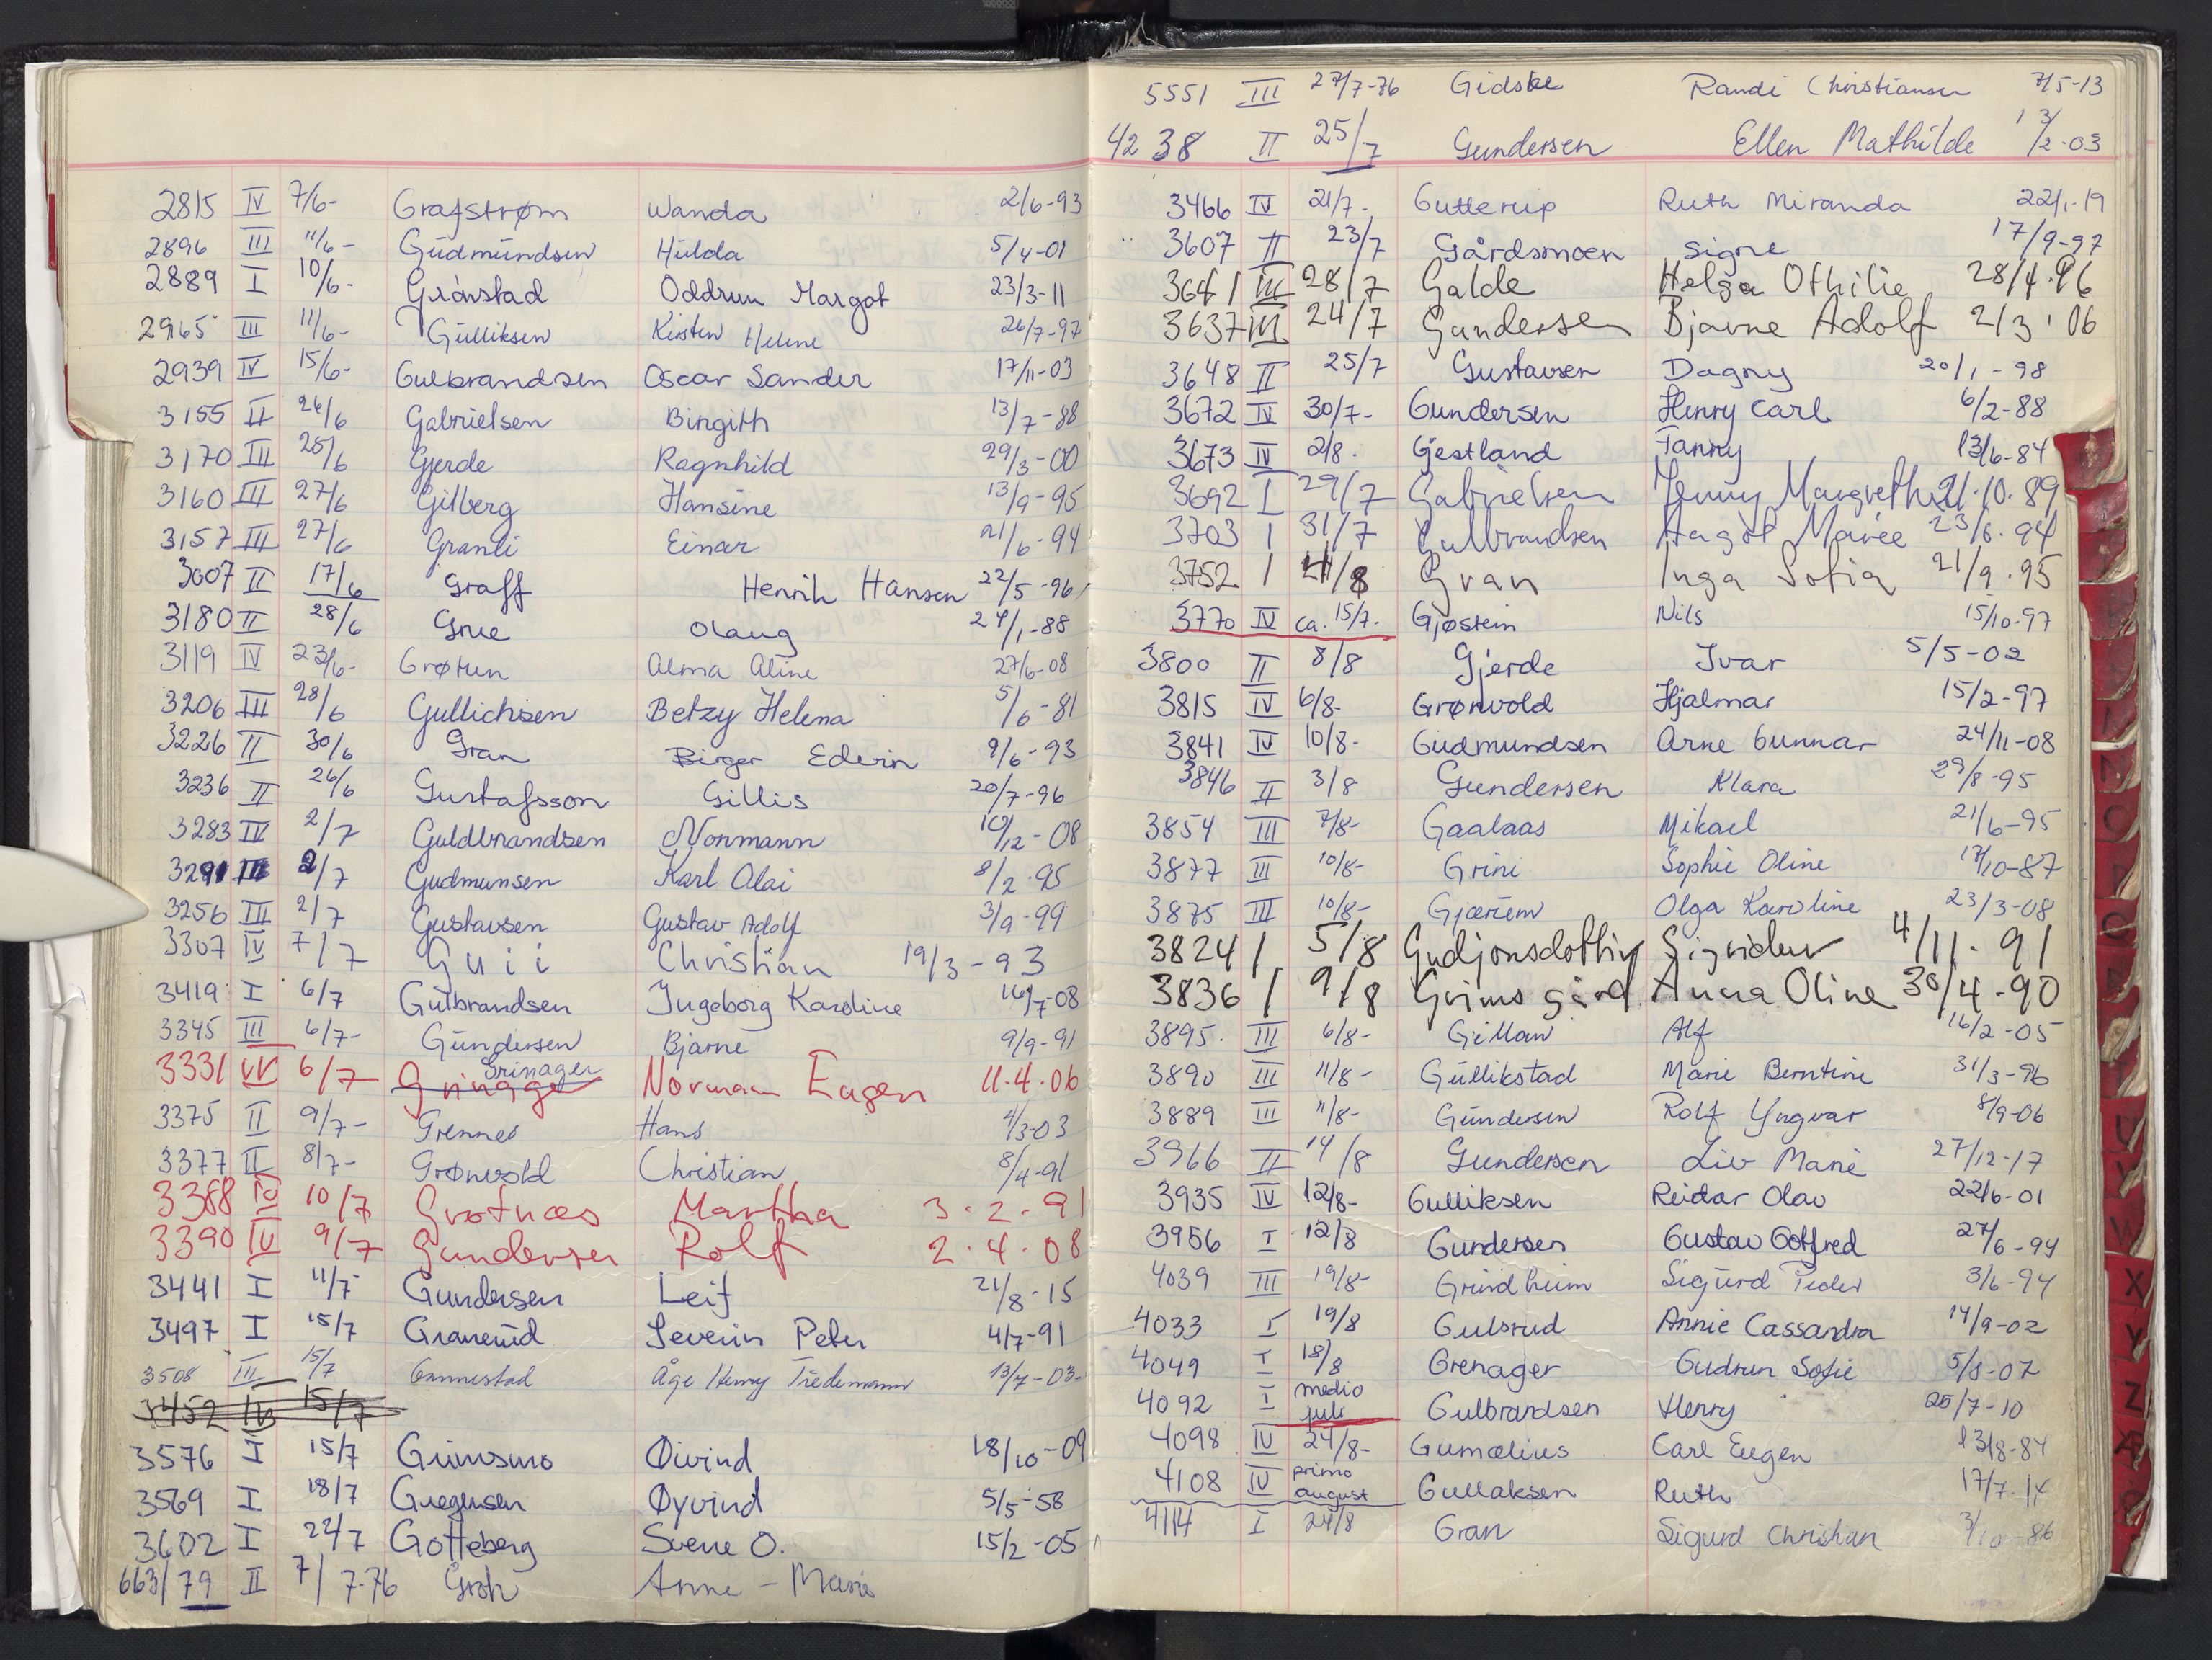 2815 IV 7/6- Grafstrøm Wanda 2/6-93
2896 III 11/6- Gudmundsen Hulda 5/4-01
2889 I 10/6- Grånstad Oddrun Margot 23/3-11
2965 III 11/6- Gulliksen Kirsten Helene 26/7-97
2939 IV 15/6- Gulbrandsen Oscar Sander 17/11-03
3155 II 26/6 Gabrielsen Birgith 13/7-88
3170 III 25/6 Gjerde Ragnhild 29/3-00
3160 III 27/6 Gilberg Hansine 13/9-95
3157 III 27/6 Granli Einar 21/6-94
3007 II 17/6 Graff Henrik Hansen 22/5-96
3180 II 28/6 Grue Olaug 24/1-88
3119 IV 23/6- Grøtun Alma Aline 27/6-08
3206 III 28/6 Gullichsen Betzy Helena 5/6-81
3226 II 30/6 Gran Birger Edvin 9/6-93
3236 II 26/6 Gustafsson Gillis 20/7-96
3283 IV 2/7 Guldbrandsen Normann 10/12-08
3291 III 2/7 Gudmunsen Karl Olai 8/2-95
3256 III 2/7 Gustavsen Gustav Adolf 3/9-99
3307 IV 7/7 Guii Christian 19/3-93
3419 I 6/7 Gulbrandsen Ingeborg Karoline 16/7-08
3345 III 6/7- Gundersen Bjarne 9/9-91
Grinager
3331 IV 6/7 Norman Eugen 11.4.06
3375 II 9/7- Grennes Hans 4/3-03
3377 II 8/7- Grønvold Christian 8/4-91
3388 IV 10/7 Grotnæs Martha 3.2.91
3390 IV 9/7 Gundersen Rolf 2.4.08
3441 I 11/7 Gundersen Leif 21/8-15
3497 I 15/7 Granerud Severin Peter 4/7-91
3508 III 15/7 Gannestad Åge Henry Tiedemann 13/7-03-
3452 IV 15/7
3576 I 15/7 Grimsmo Øivind 18/10-09
3569 I 18/7 Gregersen Øyvind 5/5-58
3602 I 22/7 Gotteberg Svene O. 15/2-05
663/79 II 7/7-76 Groh Anne-Marie
5551 III 27/7-76 Gidske Randi Christiansen 7/5-13
4238 II 25/7 Gundersen Ellen Mathilde 13/2-03
3466 IV 21/7- Gutterup Ruth Miranda 22/1-19
3607 II 23/7 Gårdsmoen Signe 17/9-97
3641 III 28/7 Galde Helga Othilie 28/4.96
3637 III 24/7 Gundersen Bjarne Adolf 2/3.06
3648 II 25/7 Gustavsen Dagny 20/1-98
3672 IV 30/7- Gundersen Henry Carl 6/2-88
3673 IV 2/8. Gjestland Fanny 13/6-84
3692 I 29/7 Gabrielsen Jenny Margrethe 21.10.89
3703 I 31/7 Gulbrandsen Aagot Marie 23/6.94
3752 I /8 Gran Inga Sofia 21/9.95
3770 IV ca. 15/7- Gjøstein Nils 15/10-97
3800 II 8/8 Gjerde Ivar 5/5-02
3815 IV 6/8- Grønvold Hjalmar 15/2-97
3841 IV 10/8- Gudmundsen Arne Gunnar 24/11-08
3846 II 3/8 Gundersen Klara 29/8-95
3854 III 7/8- Gaalaas Mikael 21/6-95
3877 III 10/8- Grini Sophie Oline 17/10-87
3875 III 10/8- Gjærum Olga Karoline 23/3-08
3824 I 5/8 Gudjonsdottir Sigridur 4/11.91
3836 I 9/8 Grimsgård Anna Oline 30/4-90
3895. III 6/8- Gillow Alf 16/2-05
3890 III 11/8- Gullikstad Marie Berntine 31/3-96
3889 III 11/8- Gundersen Rolf Yngvar 8/9-06
3966 II 14/8 Gundersen Liv Marie 27/12-17
3935 IV 12/8- Gulliksen Reidar Olav 22/6-01
3956 I 12/8 Gundersen Gustav Gotfred 27/6-94
4039 III 19/8- Grindheim Sigurd Peder 3/6-94
4033 I 19/8 Gulsrud Annie Cassandra 14/9-02
4049 I 18/8 Grenager Gudrun Sofie 5/8-07
4092 I medio juli Gulbrandsen Henry 25/7-10
4098 IV 24/8- Gumælius Carl Eugen 13/8-84
4108 IV primo august Gullaksen Ruth 17/7-14
4114 I 24/8 Gran Sigurd Christian 3/10-86
O
X
Y
Z
Æ